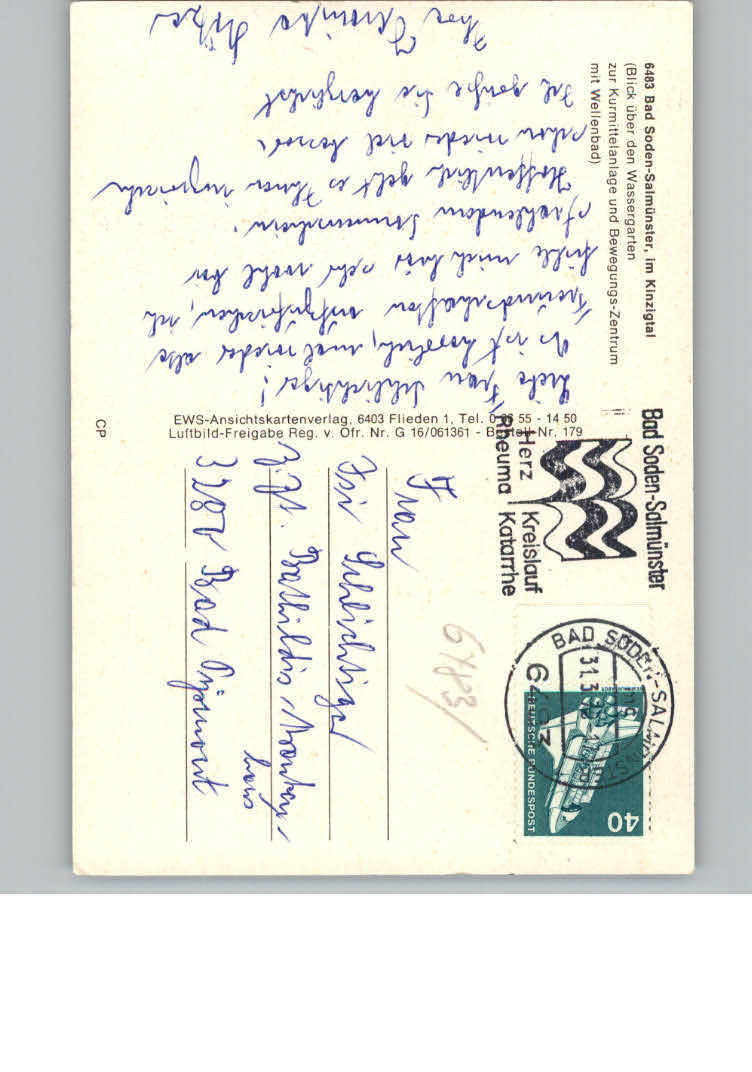 6483 Bad Soden-Salmünster, im Kinzigtal
(Blick über den Wassergarten
zur Kurmittelanlage und Bewegungs-Zentrum
mit Wellenbad)
Liebe Frau Schlichtiger!
Es ist herrlich, mal wieder alte
Freundschaften aufzufrischen, ich
fühle mich hier sehr wohl bei
strahlendem Sonnenschein.
Hoffentlich geht es Ihnen inzwischen
schon wieder viel besser.
Ich grüße Sie herzlichst
Ihre
EWS-Ansichtskartenverlag, 6403 Flieden 1, Tel. 0 66 55 - 14 50
Luftbild-Freigabe Reg. v. Ofr. Nr. G 16/061361 - Bestell Nr. 179
CP
Bad Soden-Salmünster
Herz Kreislauf
Rheuma Katarrhe
BAD SODEN-SALMÜNSTER
31.3
6483
40
DEUTSCHE BUNDESPOST
6483/
Frau
Schlichtiger
z. Zt. Bathildis-Kranken-
haus
3280 Bad Pyrmont